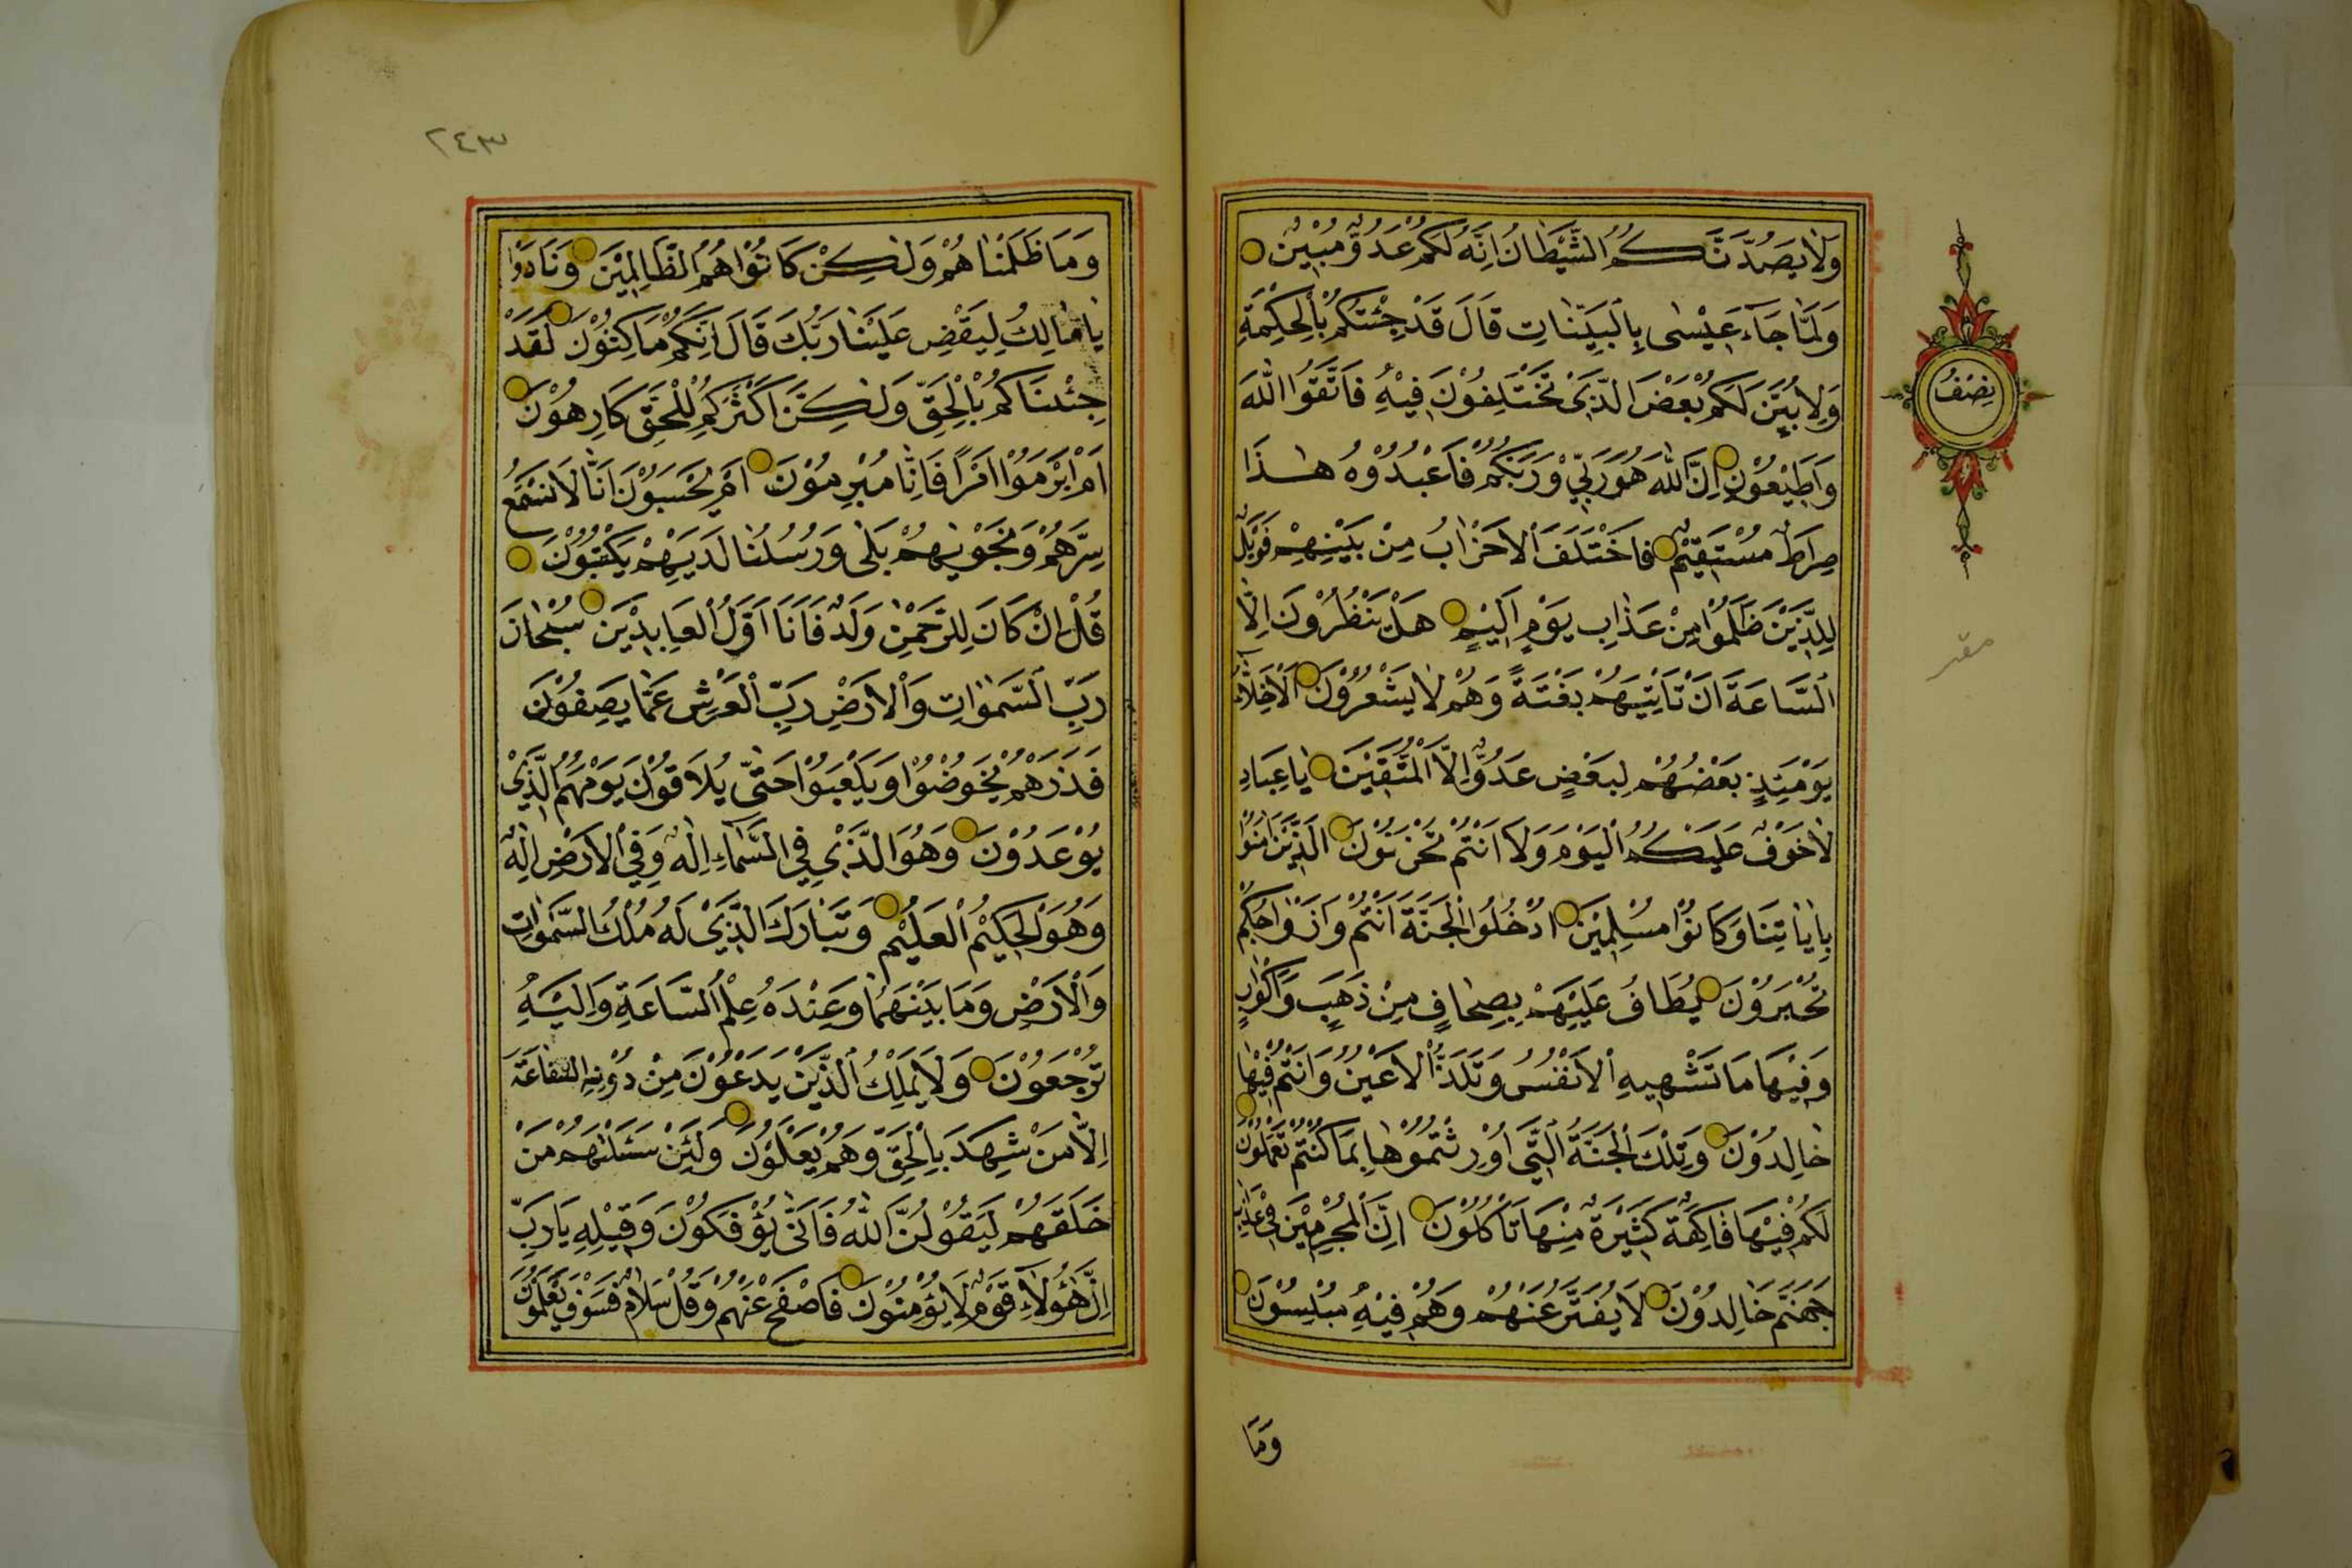 وَلَا يَصُدَّنَّكُمُ الشَّيْطَانُ اِنَّهُ لَكُمْ عَدُوٌّ مُبِيْنٌ
وَلَمَّا جَاۤءَ عِيْسٰى بِالْبَيِّنَاتِ قَالَ قَدْ جِئْتُكُمْ بِالْحِكْمَةِ
وَلِاُبَيِّنَ لَكُمْ بَعْضَ الَّذِيْ تَخْتَلِفُوْنَ فِيْهِ فَاتَّقُوا اللّٰهَ
وَاَطِيْعُوْنِ اِنَّ اللّٰهَ هُوَ رَبِّيْ وَرَبُّكُمْ فَاعْبُدُوْهُ هٰذَا
صِرَاطٌ مُسْتَقِيْمٌ فَاخْتَلَفَ الْاَحْزَابُ مِنْ بَيْنِهِمْ فَوَيْلٌ
لِلَّذِيْنَ ظَلَمُوْا مِنْ عَذَابِ يَوْمٍ اَلِيْمٍ هَلْ يَنْظُرُوْنَ اِلَّا
السَّاعَةَ اَنْ تَاْتِيَهُمْ بَغْتَةً وَهُمْ لَا يَشْعُرُوْنَ اَلْاَخِلَّاۤءُ
يَوْمَئِذٍ بَعْضُهُمْ لِبَعْضٍ عَدُوٌّ اِلَّا الْمُتَّقِيْنَ يَا عِبَادِ
لَا خَوْفٌ عَلَيْكُمُ الْيَوْمَ وَلَا اَنْتُمْ تَحْزَنُوْنَ اَلَّذِيْنَ اٰمَنُوْا
بِاٰيَاتِنَا وَكَانُوْا مُسْلِمِيْنَ اُدْخُلُوا الْجَنَّةَ اَنْتُمْ وَاَزْوَاجُكُمْ
تُحْبَرُوْنَ يُطَافُ عَلَيْهِمْ بِصِحَافٍ مِنْ ذَهَبٍ وَاَكْوَابٍ
وَفِيْهَا مَا تَشْتَهِيهِ الْاَنْفُسُ وَتَلَذُّ الْاَعْيُنُ وَاَنْتُمْ فِيْهَا
خَالِدُوْنَ وَتِلْكَ الْجَنَّةُ الَّتِيْ اُوْرِثْتُمُوْهَا بِمَا كُنْتُمْ تَعْمَلُوْنَ
لَكُمْ فِيْهَا فَاكِهَةٌ كَثِيْرَةٌ مِنْهَا تَاْكُلُوْنَ اِنَّ الْمُجْرِمِيْنَ فِيْ عَذَابِ
جَهَنَّمَ خَالِدُوْنَ لَا يُفَتَّرُ عَنْهُمْ وَهُمْ فِيْهِ مُبْلِسُوْنَ
وَمَا
نِصْفُ
٢٤٣
وَمَا ظَلَمْنَاهُمْ وَلٰكِنْ كَانُوْا هُمُ الظَّالِمِيْنَ وَنَادَوْا
يَا مَالِكُ لِيَقْضِ عَلَيْنَا رَبُّكَ قَالَ اِنَّكُمْ مَاكِثُوْنَ لَقَدْ
جِئْنَاكُمْ بِالْحَقِّ وَلٰكِنَّ اَكْثَرَكُمْ لِلْحَقِّ كَارِهُوْنَ
اَمْ اَبْرَمُوْا اَمْرًا فَاِنَّا مُبْرِمُوْنَ اَمْ يَحْسَبُوْنَ اَنَّا لَا نَسْمَعُ
سِرَّهُمْ وَنَجْوٰيهُمْ بَلٰى وَرُسُلُنَا لَدَيْهِمْ يَكْتُبُوْنَ
قُلْ اِنْ كَانَ لِلرَّحْمٰنِ وَلَدٌ فَاَنَا اَوَّلُ الْعَابِدِيْنَ سُبْحَانَ
رَبِّ السَّمٰوَاتِ وَالْاَرْضِ رَبِّ الْعَرْشِ عَمَّا يَصِفُوْنَ
فَذَرْهُمْ يَخُوْضُوْا وَيَلْعَبُوْا حَتّٰى يُلَاقُوْا يَوْمَهُمُ الَّذِيْ
يُوْعَدُوْنَ وَهُوَ الَّذِيْ فِي السَّمَاۤءِ اِلٰهٌ وَفِي الْاَرْضِ اِلٰهٌ
وَهُوَ الْحَكِيْمُ الْعَلِيْمُ وَتَبَارَكَ الَّذِيْ لَهُ مُلْكُ السَّمٰوَاتِ
وَالْاَرْضِ وَمَا بَيْنَهُمَا وَعِنْدَهُ عِلْمُ السَّاعَةِ وَاِلَيْهِ
تُرْجَعُوْنَ وَلَا يَمْلِكُ الَّذِيْنَ يَدْعُوْنَ مِنْ دُوْنِهِ الشَّفَاعَةَ
اِلَّا مَنْ شَهِدَ بِالْحَقِّ وَهُمْ يَعْلَمُوْنَ وَلَئِنْ سَئَلْتَهُمْ مَنْ
خَلَقَهُمْ لَيَقُوْلُنَّ اللّٰهُ فَاَنّٰى يُؤْفَكُوْنَ وَقِيْلِهِ يَا رَبِّ
اِنَّ هٰؤُلَاۤءِ قَوْمٌ لَا يُؤْمِنُوْنَ فَاصْفَحْ عَنْهُمْ وَقُلْ سَلَامٌ فَسَوْفَ يَعْلَمُوْنَ